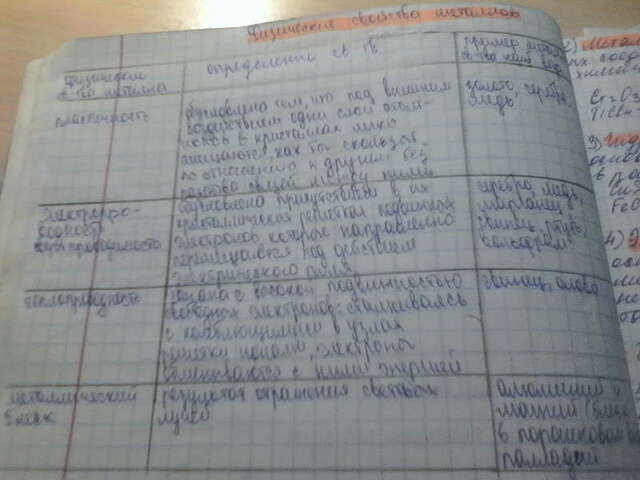 Физические свойства металлов
физические св-ва металла
определение св-тв
пример метал.
пластичность
обусловлено тем, что под внешним
воздействием одни слои атом-
ионов в кристаллах легко
смещаются, как бы скользят
по отношению к другим, без
разрыва связей между ними
золото, серебро,
медь
Электропро-
водность
обусловлена присутствием в их
кристаллических решетках подвижных
электронов, которые направленно
перемещаются под действием
электрического поля.
серебро, медь,
марганец,
свинец, ртуть,
вольфрам
теплопроводность
связана с высокой подвижностью
свободных электронов: сталкиваясь
с колеблющимися в узлах
решетки ионами, электроны
обмениваются с ними энергией
свинец, олово
металлический
блеск
результат отражения световых
лучей
алюминий и
магний (блеск
в порошковом
палладий
2) Метал
3)
4)